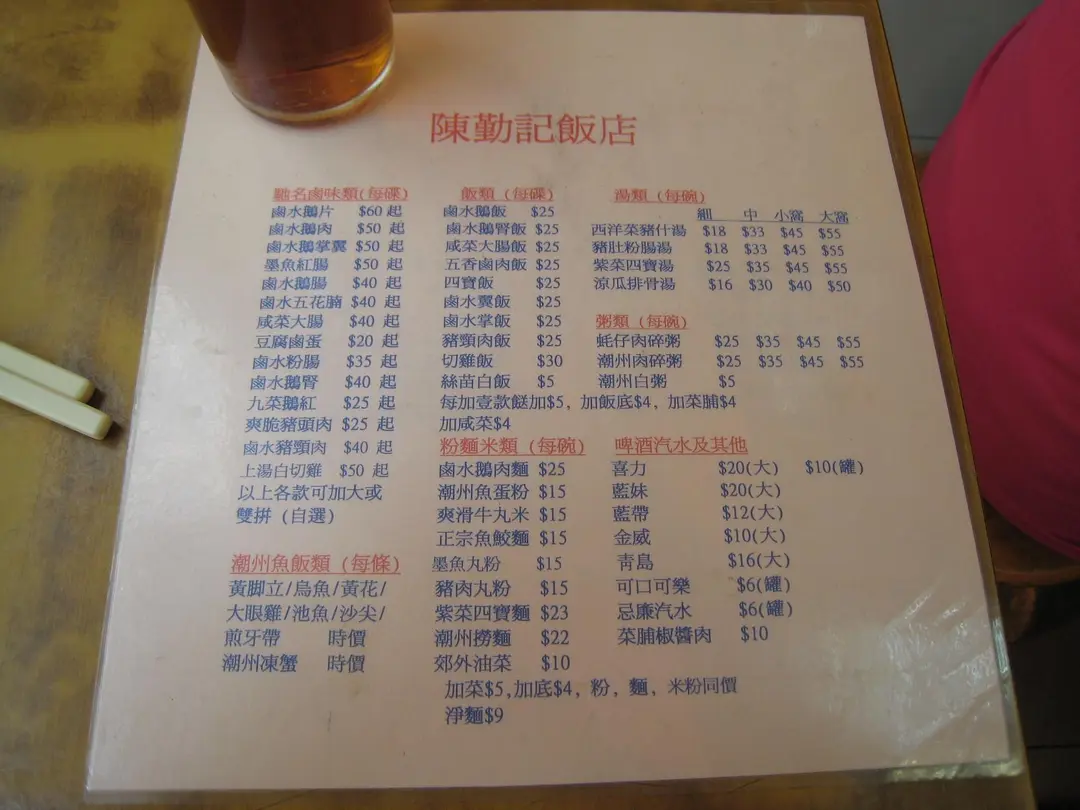 陳勤記飯店
馳名鹵味類(每碟)
鹵水鵝片 $60 起
鹵水鵝肉 $50 起
鹵水鵝掌翼 $50 起
墨魚紅腸 $50 起
鹵水鵝腸 $40 起
鹵水五花腩 $40 起
咸菜大腸 $40 起
豆腐鹵蛋 $20 起
鹵水粉腸 $35 起
鹵水鵝腎 $40 起
九菜鵝紅 $25 起
爽脆豬頭肉 $25 起
鹵水豬頸肉 $40 起
上湯白切雞 $50 起
以上各款可加大或
雙拼 (自選)
潮州魚飯類 (每條)
黃脚立/烏魚/黃花/
大眼雞/池魚/沙尖/
煎牙帶 時價
潮州凍蟹 時價
飯類 (每碟)
鹵水鵝飯 $25
鹵水鵝腎飯 $25
咸菜大腸飯 $25
五香鹵肉飯 $25
四寶飯 $25
鹵水翼飯 $25
鹵水掌飯 $25
豬頸肉飯 $25
切雞飯 $30
絲苗白飯 $5
每加壹款餸加$5, 加飯底$4, 加菜脯$4
加咸菜$4
粉麵米類 (每碗)
鹵水鵝肉麵 $25
潮州魚蛋粉 $15
爽滑牛丸米 $15
正宗魚鮫麵 $15
墨魚丸粉 $15
豬肉丸粉 $15
紫菜四寶麵 $23
潮州撈麵 $22
郊外油菜 $10
加菜$5,加底$4, 粉, 麵, 米粉同價
淨麵$9
湯類 (每碗)
細 中 小窩 大窩
西洋菜豬什湯 $18 $33 $45 $55
豬肚粉腸湯 $18 $33 $45 $55
紫菜四寶湯 $25 $35 $45 $55
涼瓜排骨湯 $16 $30 $40 $50
粥類 (每碗)
蚝仔肉碎粥 $25 $35 $45 $55
潮州肉碎粥 $25 $35 $45 $55
潮州白粥 $5
啤酒汽水及其他
喜力 $20(大) $10(罐)
藍妹 $20(大)
藍帶 $12(大)
金威 $10(大)
青島 $16(大)
可口可樂 $6(罐)
忌廉汽水 $6(罐)
菜脯椒醬肉 $10